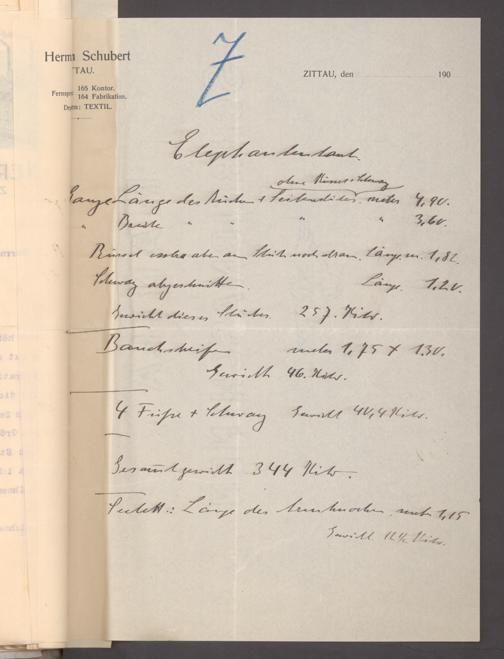 Herm Schubert
TTAU.
Fernspr 165 Kontor.
164 Fabrikation.
Depm: TEXTIL.
Z
ZITTAU, den 190
Elephantenhaut.
ohne Rüssel + Schwanz
Ganze Länge des Rückens + Seitentheiles meter 4,90.
" Breite " " " " 3,60.
Rüssel extra aber am Stück noch dran. Länge m. 1,82
Schwanz abgeschnitten. Länge 1,20.
Gewicht dieses Stückes 257. Kilo.
Bauchstreifen meter 1,75 x 130.
Gewicht 46. Kilo.
4 Füsse + Schwanz Gewicht 40,4 Kilo.
Gesamtgewicht 344 Kilo.
Skelett: Länge des meter 1,15
Gewicht Kilo.